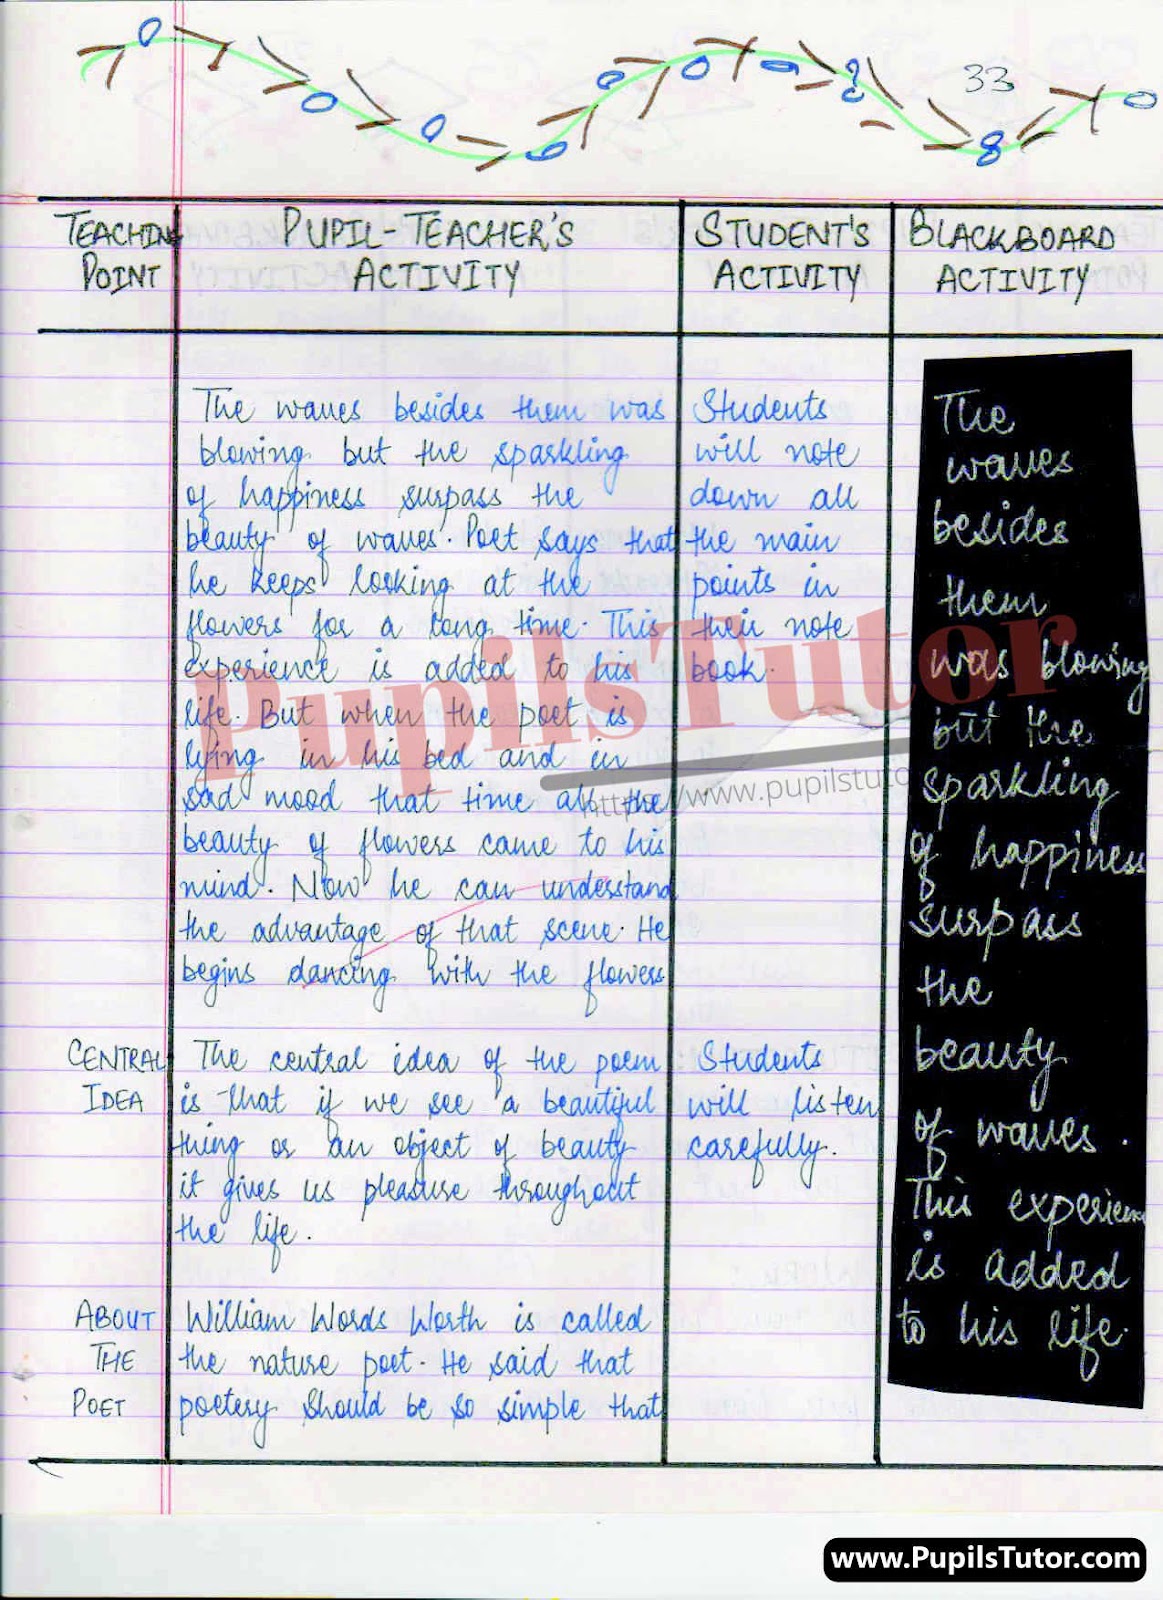 33
TEACHING
POINT
PUPIL-TEACHER'S
ACTIVITY
STUDENT'S
ACTIVITY
BLACKBOARD
ACTIVITY
The waves besides them was
blowing but the sparkling
of happiness surpass the
beauty of waves. Poet says that
he keeps looking at the
flowers for a long time. This
experience is added to his
life. But when the poet is
lying in his bed and in
sad mood that time all the
beauty of flowers came to his
mind. Now he can understand
the advantage of that scene. He
begins dancing with the flowers
Students
will note
down all
the main
points in
their note
book.
The
waves
besides
them
was blowing
but the
sparkling
of happiness
surpass
the
beauty
of waves.
This experience
is added
to his life.
CENTRAL
IDEA
The central idea of the poem
is that if we see a beautiful
thing or an object of beauty
it gives us pleasure throughout
the life.
Students
will listen
carefully.
ABOUT
THE
POET
William Words Worth is called
the nature poet. He said that
poetery should be so simple that
PupilsTutor
http://www.pupilstuto
www.PupilsTutor.com